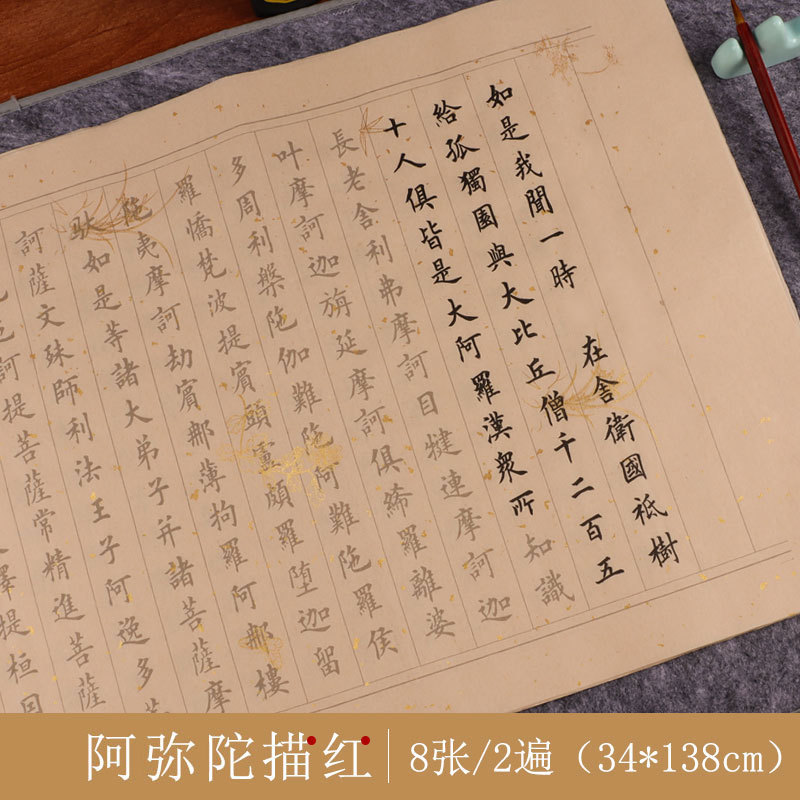 如是我聞一時 在舍衛國祇樹
給孤獨園與大比丘僧千二百五
十人俱皆是大阿羅漢衆所知識
長老舍利弗摩訶目犍連摩訶迦
叶摩訶迦旃延摩訶俱絺羅離婆
多周利槃陁伽難陁阿難陁羅侯
羅憍梵波提賓頭盧頗羅堕迦留
陁夷摩訶劫賓那薄拘羅阿那樓
馱如是等諸大弟子并諸菩薩摩
訶薩文殊師利法王子阿逸多菩
訶提菩薩常精進菩薩
提桓因
阿弥陀描红 8张/2遍（34*138cm）